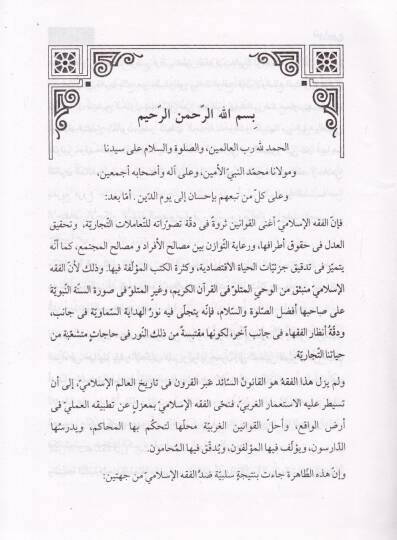 بسم الله الرّحمن الرّحيم
الحمد لله رب العالمين، والصلوة والسلام على سيدنا
ومولانا محمّد النبيّ الأمين، وعلى آله وأصحابه أجمعين،
وعلى كلّ من تبعهم بإحسان إلى يوم الدّين. أمّا بعد:
فإنّ الفقه الإسلاميّ أغنى القوانين ثروةً فى دقّة تصوّراته للتّعاملات التّجاريّة، وتحقيق
العدل فى حقوق أطرافها، ورعاية التّوازن بين مصالح الأفراد و مصالح المجتمع، كما أنّه
يتميّز فى تدقيق جزئيّات الحياة الاقتصادية، وكثرة الكتب المؤلّفة فيها. وذلك لأنّ الفقه
الإسلاميّ منبثق من الوحي المتلوّ فى القرآن الكريم، وغيرِ المتلوّ فى صورة السنّة النبويّة
على صاحبها أفضل الصّلوة والسّلام، فإنّه يتجلّى فيه نورُ الهداية السّماويّة فى جانب،
ودقّةُ أنظار الفقهاء فى جانب آخر، لكونها مقتبسةً من ذلك النّور فى حاجاتٍ متشعّبة من
حياتنا التّجاريّة.
ولم يزل هذا الفقهُ هو القانونَ السّائد عبر القرون فى تاريخ العالم الإسلاميّ، إلى أن
تسيطر عليه الاستعمار الغربيّ، فنحّى الفقه الإسلاميّ بمعزلٍ عن تطبيقه العمليّ فى
أرض الواقع، وأحلّ القوانين الغربيّة محلّها لتحكُم بها المحاكم، ويدرسُها
الدّارسون، ويؤلّف فيها المؤلفون، ويُدقّق فيها المُحامون.
وإنّ هذه الظّاهرة جاءت بنتيجةٍ سلبيّة ضدّ الفقه الإسلاميّ من جهتين: